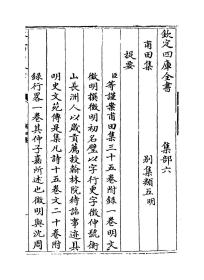 欽定四庫全書 集部六
甫田集 別集類五明
提要
臣等謹案甫田集三十五卷附錄一卷明文
徵明撰徵明初名璧以字行更字徵仲號衡
山長洲人以歲貢薦授翰林院待詔事迹具
明史文苑傳是集凡詩十五卷文二十卷附
錄行畧一卷其仲子嘉所述也徵明與沈周